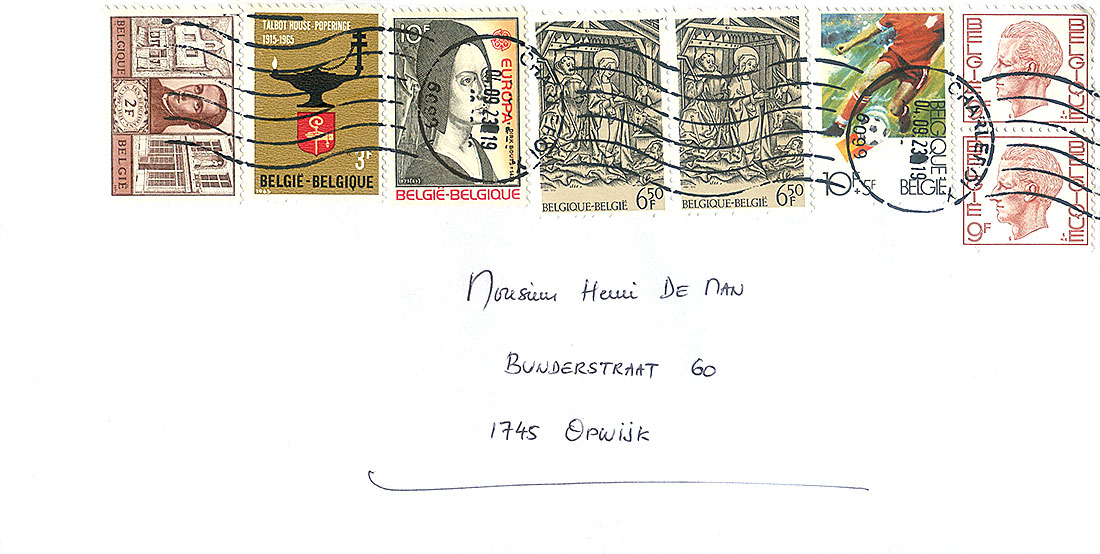 BELGIQUE
2F
BELGIË
TALBOT HOUSE-POPERINGE
1915-1965
3F
BELGIË-BELGIQUE
10F
EUROPA
BELGIË-BELGIQUE
BELGIQUE-BELGIË
6,50 F
BELGIQUE-BELGIË
6,50 F
BELGIQUE
BELGIË
10F+5F
BELGIË
BELGIQUE
BELGIË
BELGIQUE
9F
6099
04.09.23
19
6099
04.09.23
19
Monsieur Henri De Man
Bunderstraat 60
1745 Opwijk